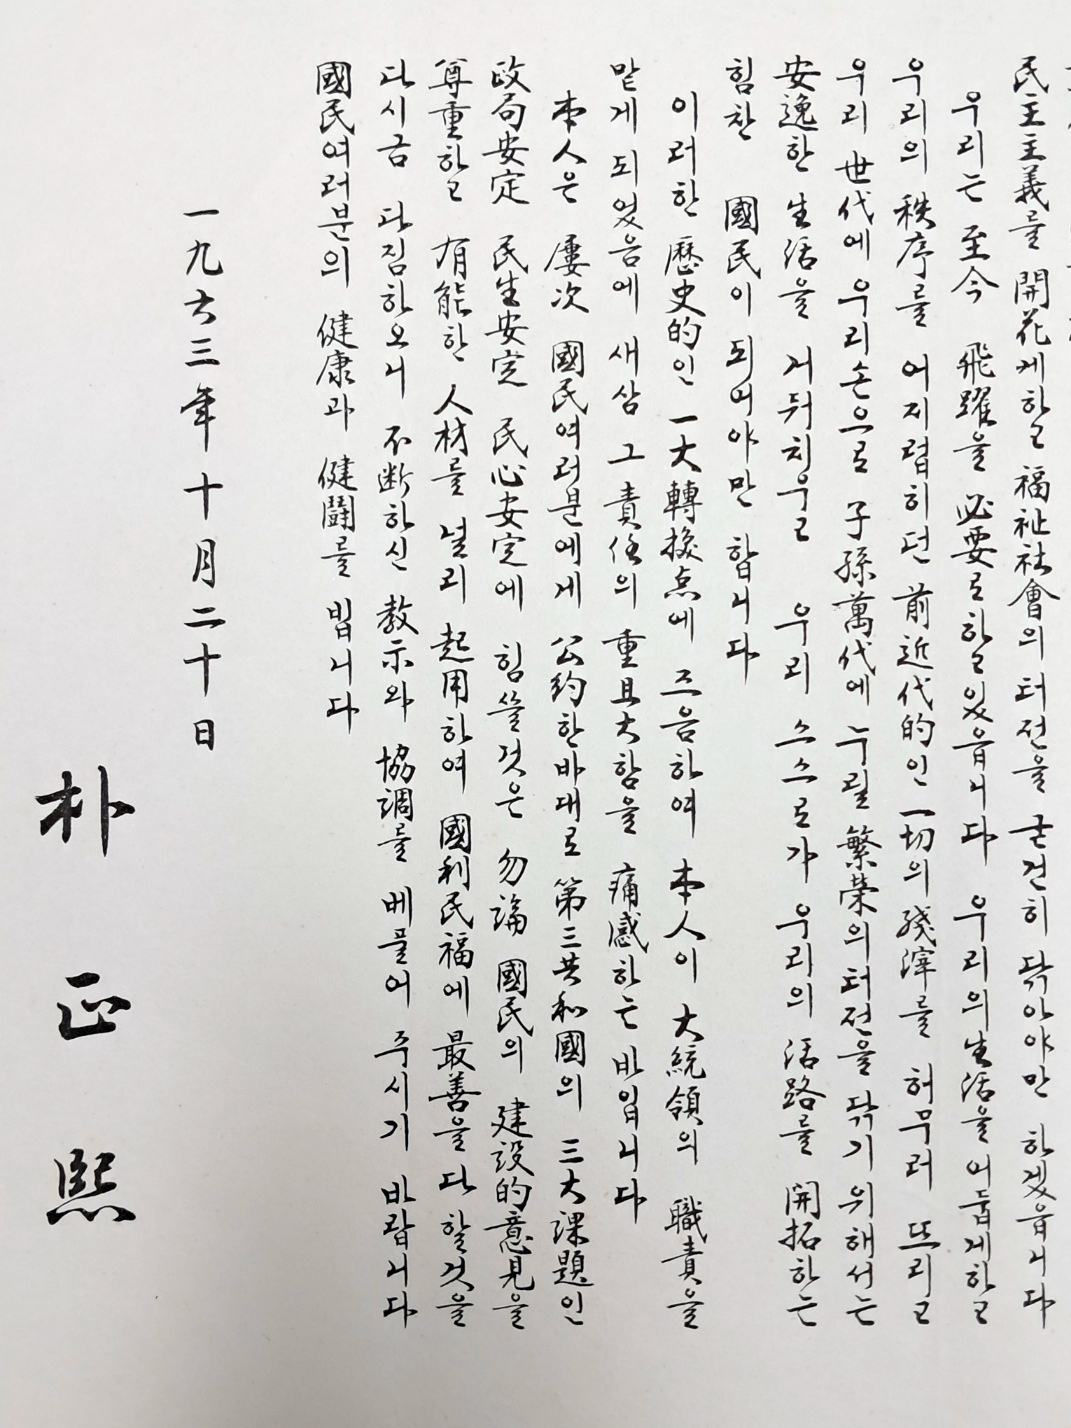 民主主義를 開花게하고 福祉社會의 터전을 굳건히 닦아야만 하겠읍니다
우리는 至今 飛躍을 必要로하고있읍니다 우리의生活을어둡게하고
우리의 秩序를 어지럽히던 前近代的인 一切의 殘滓를 허무러 뜨리고
우리 世代에 우리손으로 子孫萬代에 누릴 繁榮의터전을 닦기 위해서는
安逸한 生活을 거둬치우고 우리 스스로가 우리의 活路를 開拓하는
힘찬 國民이 되어야만 합니다
이러한 歷史的인 一大轉換点에 즈음하여 本人이 大統領의 職責을
맡게 되었음에 새삼 그 責任의 重且大함을 痛感하는 바입니다
本人은 屢次 國民여러분에게 公約한바대로 第三共和國의 三大課題인
政局安定 民生安定 民心安定에 힘쓸것은 勿論 國民의 建設的意見을
尊重하고 有能한 人材를 널리 起用하여 國利民福에 最善을다할것을
다시금 다짐하오니 不斷하신 敎示와 協調를 베풀어 주시기 바랍니다
國民여러분의 健康과 健鬪를 빕니다
一九六三年十月二十日
朴正熙